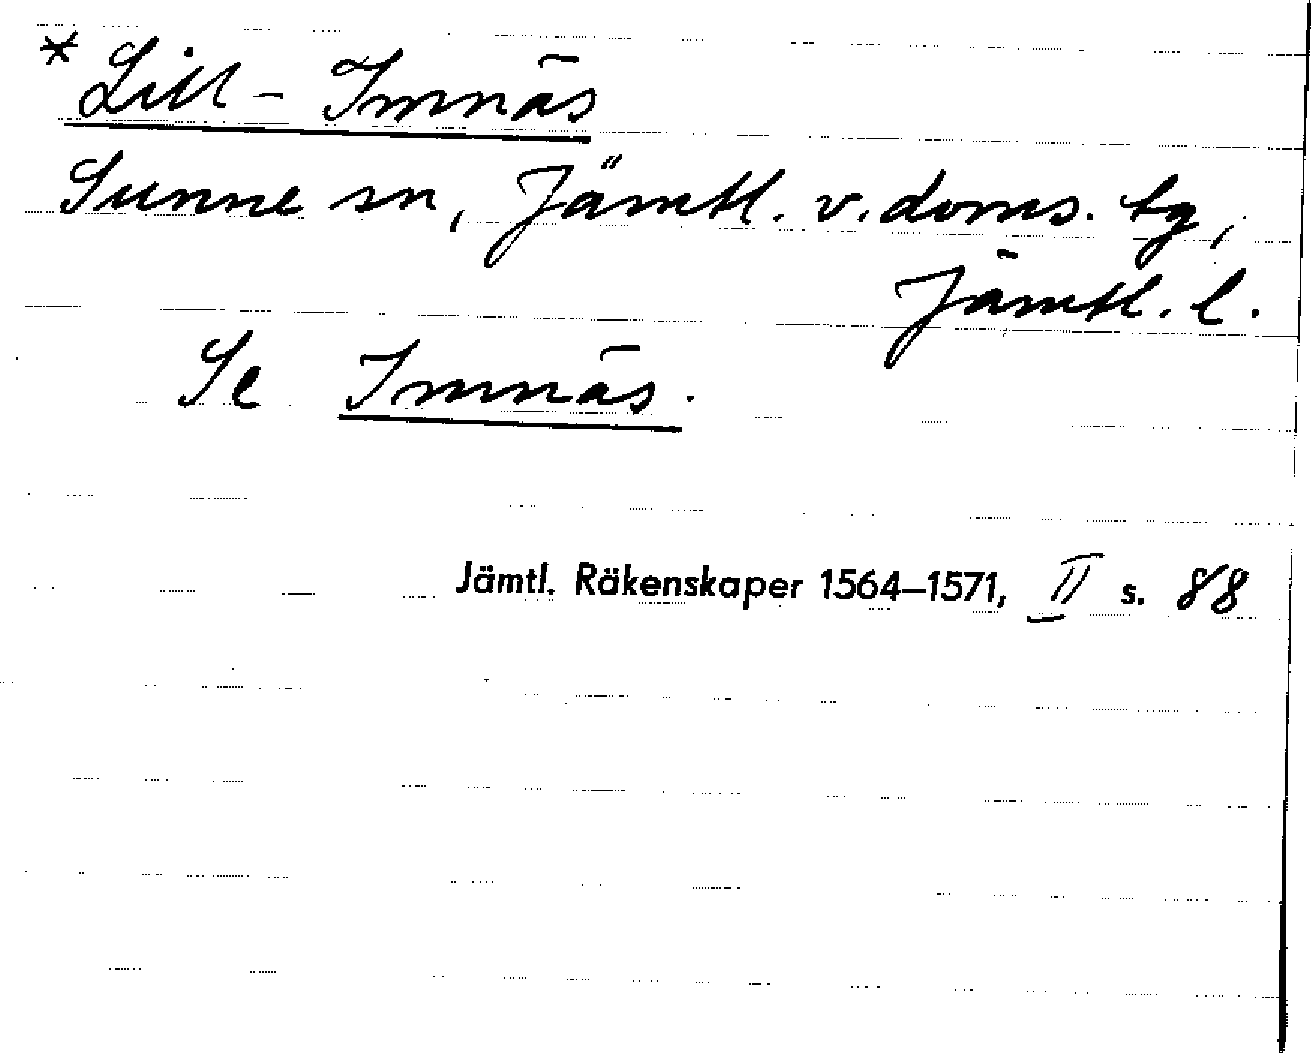 * Lill-Imnäs
Sunne sn, Jämtl. v. doms. tg,
Jämtl. l.
Se Imnäs.
Jämtl. Räkenskaper 1564–1571, II s. 88